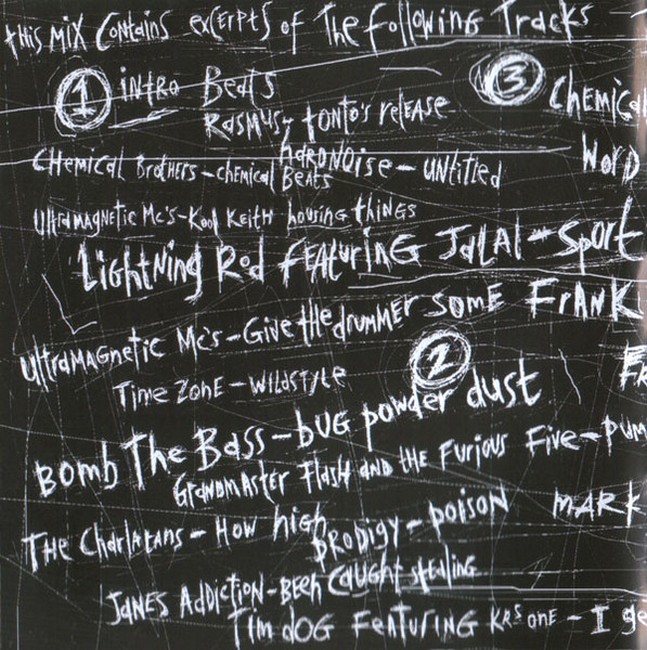 this mix contains excerpts of The following Tracks
1 intro Beats
3
Chemical
Rasmus - tonto's release
Hardnoise - untitled
Word
Chemical Brothers - chemical Beats
Ultramagnetic Mc's - Kool Keith housing things
Lightning Rod featuring Jalal - Sport
Ultramagnetic Mc's - Give the drummer some
Frank
2
Time Zone - Wildstyle
Fr
Bomb The Bass - bug powder dust
Grandmaster Flash and the Furious Five - pum
The Charlatans - How high
Mark
Prodigy - poison
Janes Addiction - Been Caught stealing
Tim dog Featuring KRS one - I ge